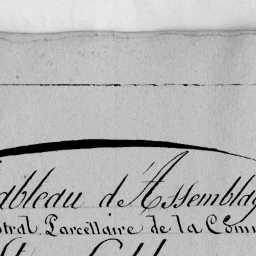 ableau d'Assembla
stral Parcellaire de la Com